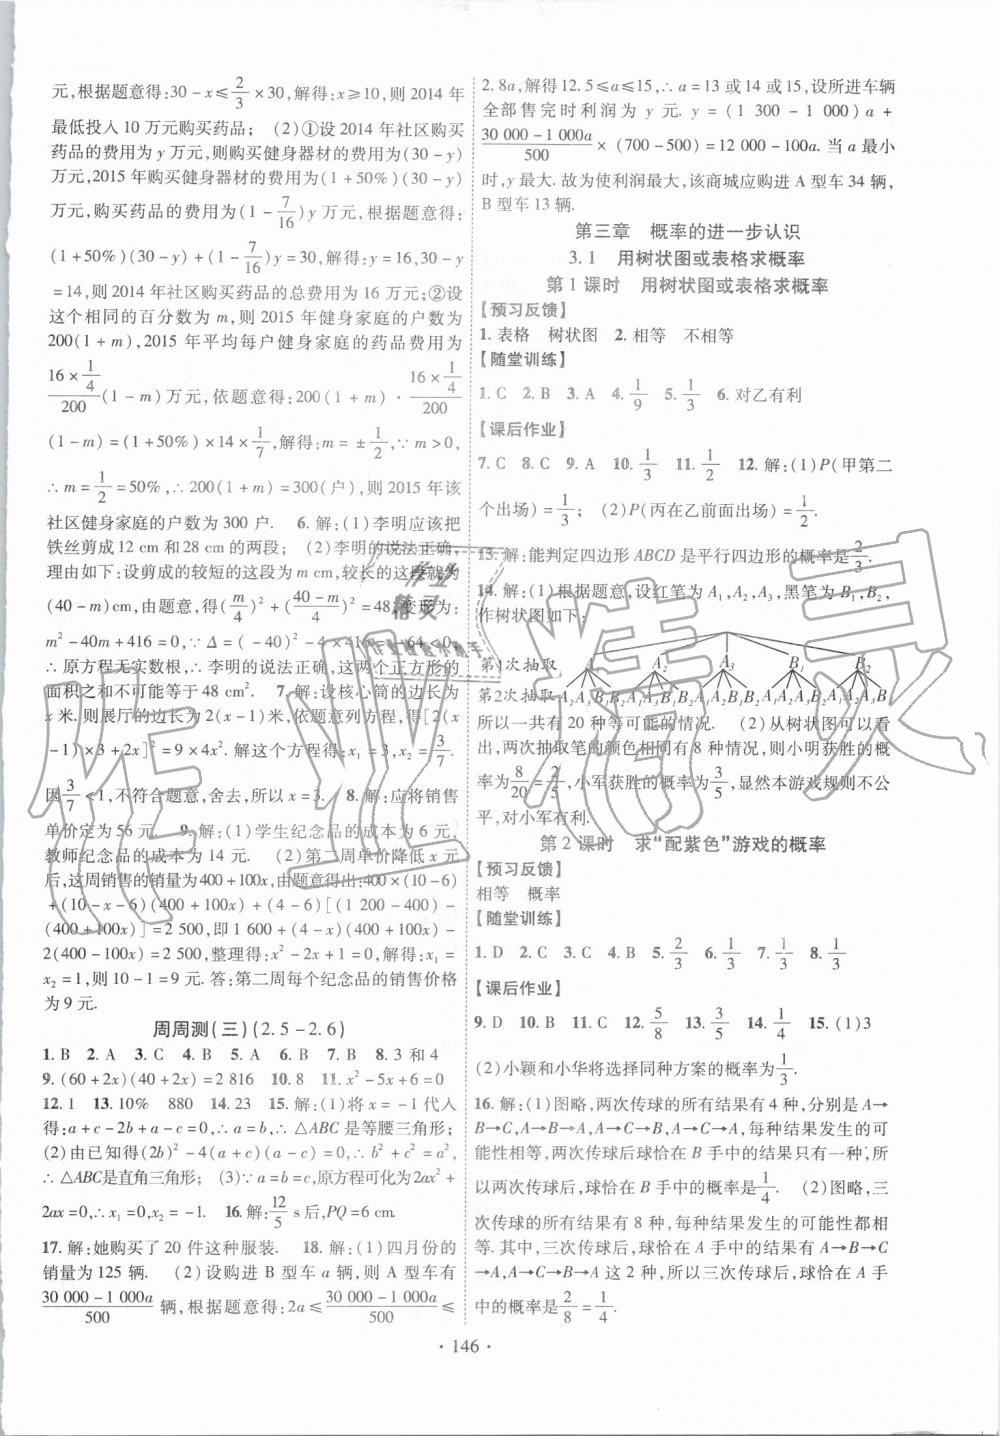 元,根据题意得:30-x≤2/3×30,解得:x≥10,则 2014 年
最低投入 10 万元购买药品; (2)①设 2014 年社区购买
药品的费用为 y 万元,则购买健身器材的费用为(30-y)
万元,2015 年购买健身器材的费用为(1+50%)(30-y)
万元,购买药品的费用为(1-7/16)y 万元,根据题意得:
(1+50%)(30-y)+(1-7/16)y=30,解得:y=16,30-y
=14,则 2014 年社区购买药品的总费用为 16 万元;②设
这个相同的百分数为 m,则 2015 年健身家庭的户数为
200(1+m),2015 年平均每户健身家庭的药品费用为
(16×1/4)/200(1-m)万元,依题意得:200(1+m)·(16×1/4)/200
(1-m)=(1+50%)×14×1/7,解得:m=±1/2,∵m>0,
∴m=1/2=50%,∴200(1+m)=300(户),则 2015 年该
社区健身家庭的户数为 300 户. 6.解:(1)李明应该把
铁丝剪成 12 cm 和 28 cm 的两段; (2)李明的说法正确,
理由如下:设剪成的较短的这段为 m cm,较长的这段就为
(40-m)cm,由题意,得(m/4)²+((40-m)/4)²=48,变形为:
m²-40m+416=0,∵Δ=(-40)²-4×416=-64<0,
∴原方程无实数根,∴李明的说法正确,这两个正方形的
面积之和不可能等于 48 cm². 7.解:设核心筒的边长为
x 米.则展厅的边长为 2(x-1)米,依题意列方程,得[2(x
-1)×3+2x]²=9×4x².解这个方程得:x₁=3,x₂=3/7.
因3/7<1,不符合题意,舍去,所以 x=3. 8.解:应将销售
单价定为 56 元. 9.解:(1)学生纪念品的成本为 6 元,
教师纪念品的成本为 14 元. (2)第二周单价降低 x 元
后,这周销售的销量为 400+100x,由题意得出:400×(10-6)
+(10-x-6)(400+100x)+(4-6)[(1 200-400)-
(400+100x)]=2 500,即 1 600+(4-x)(400+100x)-
2(400-100x)=2 500,整理得:x²-2x+1=0,解得:x₁=
x₂=1,则 10-1=9 元. 答:第二周每个纪念品的销售价格
为 9 元.
周周测(三)(2.5-2.6)
1. B 2. A 3. C 4. C 5. A 6. B 7. B 8. 3 和 4
9. (60+2x)(40+2x)=2 816 10. 8 11. x²-5x+6=0
12. 1 13. 10% 880 14. 23 15.解:(1)将 x=-1 代入
得:a+c-2b+a-c=0,∴a=b,∴△ABC 是等腰三角形;
(2)由已知得(2b)²-4(a+c)(a-c)=0,∴b²+c²=a²,
∴△ABC 是直角三角形; (3)∵a=b=c,原方程可化为 2ax²+
2ax=0,∴x₁=0,x₂=-1. 16.解:12/5 s 后,PQ=6 cm.
17.解:她购买了 20 件这种服装. 18.解:(1)四月份的
销量为 125 辆. (2)设购进 B 型车 a 辆,则 A 型车有
(30 000-1 000a)/500 辆,根据题意得:2a≤(30 000-1 000a)/500≤
2.8a,解得 12.5≤a≤15,∴a=13 或 14 或 15,设所进车辆
全部售完时利润为 y 元. y=(1 300-1 000)a+
(30 000-1 000a)/500×(700-500)=12 000-100a. 当 a 最小
时,y 最大. 故为使利润最大,该商城应购进 A 型车 34 辆,
B 型车 13 辆.
第三章 概率的进一步认识
3.1 用树状图或表格求概率
第 1 课时 用树状图或表格求概率
【预习反馈】
1.表格 树状图 2.相等 不相等
【随堂训练】
1. C 2. B 3. A 4. 1/9 5. 1/3 6. 对乙有利
【课后作业】
7. C 8. C 9. A 10. 1/3 11. 1/2 12. 解:(1)P(甲第二
个出场)=1/3; (2)P(丙在乙前面出场)=1/2.
13.解:能判定四边形 ABCD 是平行四边形的概率是2/3.
14.解:(1)根据题意,设红笔为 A₁,A₂,A₃,黑笔为 B₁,B₂,
作树状图如下:
第1次抽取 A₁ A₂ A₃ B₁ B₂
第2次抽取 A₂A₃B₁B₂ A₁A₃B₁B₂ A₁A₂B₁B₂ A₁A₂A₃B₂ A₁A₂A₃B₁
所以一共有 20 种等可能的情况. (2)从树状图可以看
出,两次抽取笔的颜色相同有 8 种情况,则小明获胜的概
率为8/20=2/5,小军获胜的概率为3/5,显然本游戏规则不公
平,对小军有利.
第 2 课时 求“配紫色”游戏的概率
【预习反馈】
相等 概率
【随堂训练】
1. D 2. C 3. D 4. B 5. 2/3 6. 1/3 7. 1/3 8. 1/3
【课后作业】
9. D 10. B 11. C 12. 5/8 13. 3/5 14. 1/4 15. (1)3
(2)小颖和小华将选择同种方案的概率为1/3.
16.解:(1)图略,两次传球的所有结果有 4 种,分别是 A→
B→C,A→B→A,A→C→B,A→C→A,每种结果发生的可
能性相等,两次传球后球恰在 B 手中的结果只有一种,所
以两次传球后,球恰在 B 手中的概率是1/4. (2)图略,三
次传球的所有结果有 8 种,每种结果发生的可能性相
等. 其中,三次传球后,球恰在 A 手中的结果有 A→B→C
→A,A→C→B→A 这 2 种,所以三次传球后,球恰在 A 手
中的概率是2/8=1/4.
· 146 ·
作业精灵